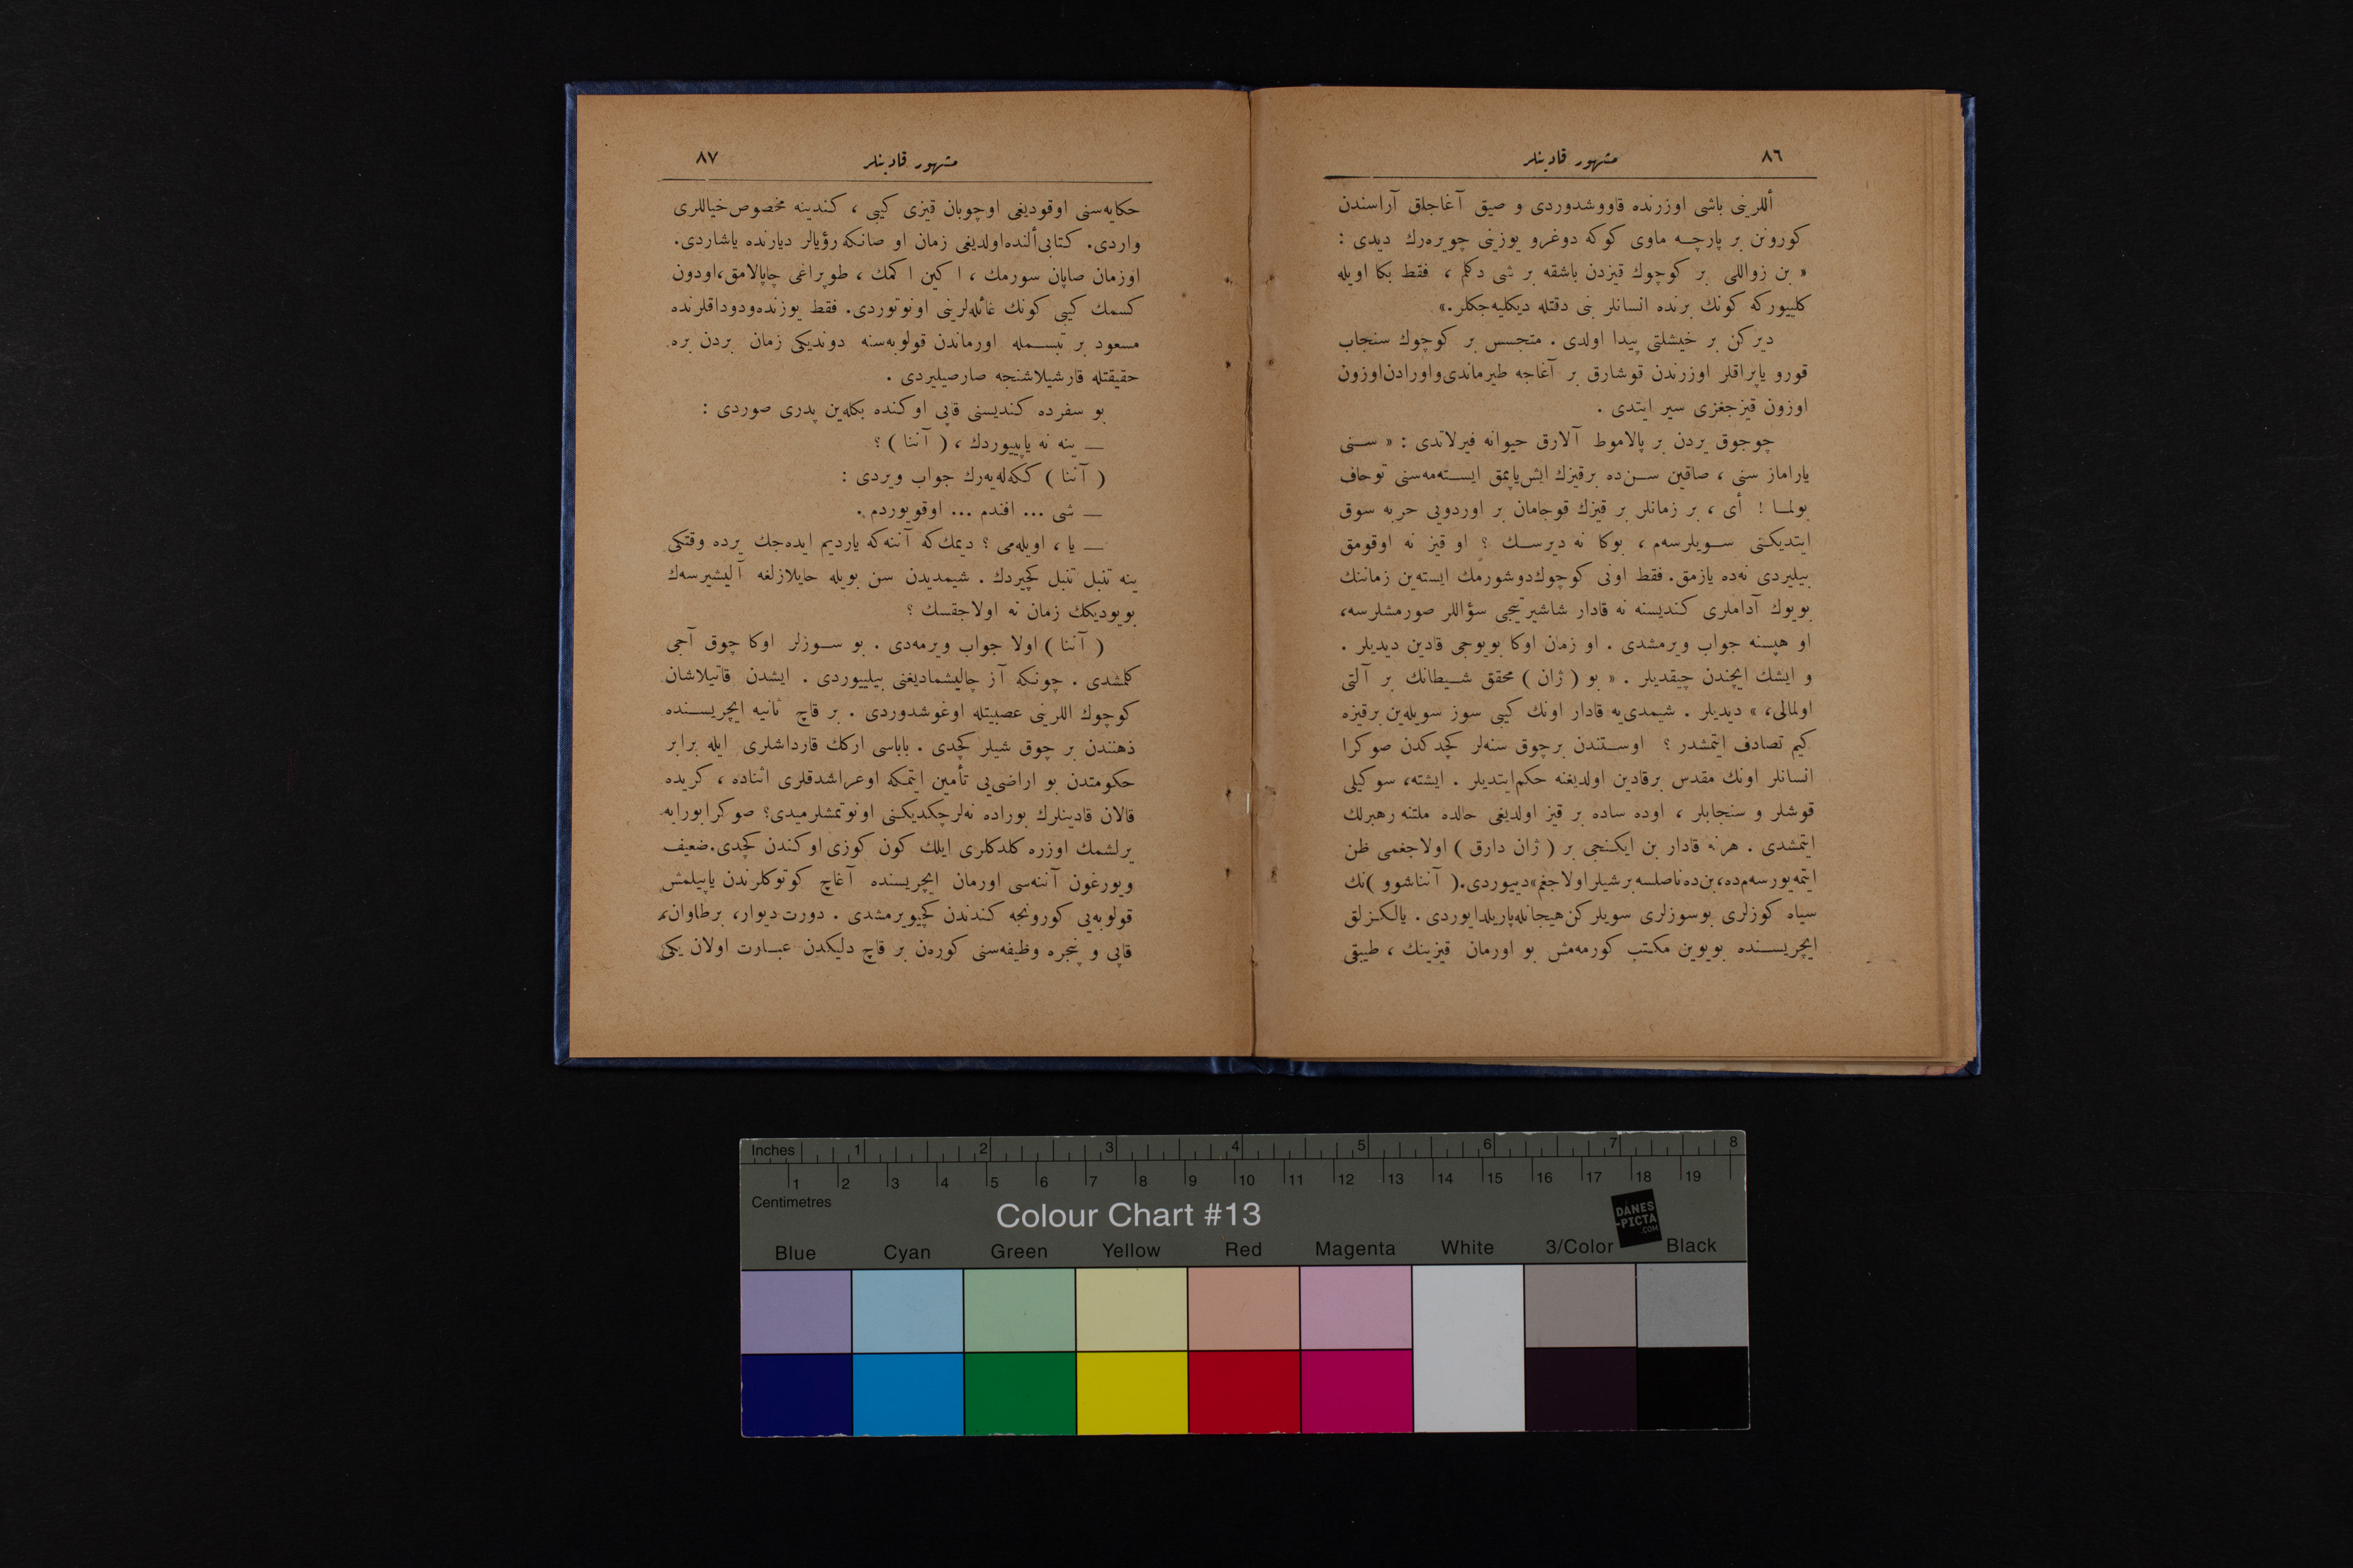 ٨٦
مشهور قادينلر
أللرينى باشى اوزرنده قاووشدوردى و صيق آغاجلق آراسندن
كورونن بر پارچه ماوى كوكه دوغرو يوزينى چويره‌رك ديدى :
« بن زواللى بر كوچوك قيزدن باشقه بر شى دكلم ، فقط بكا اويله
كلييوركه كونك برنده انسانلر بنى دقتله ديكليه‌جكلر.»
ديركن بر خيشلتى پيدا اولدى . متجسس بر كوچوك سنجاب
قورو ياپراقلر اوزرندن قوشارق بر آغاجه طيرماندى‌واورادن‌اوزون
اوزون قيزجغزى سير ايتدى .
چوجوق يردن بر پالاموط آلارق حيوانه فيرلاتدى : « سنى
ياراماز سنى ، صاقين سن‌ده برقيزك ايش‌ياپمق ايسته‌مه‌سنى توحاف
بولما ! أى ، بر زمانلر بر قيزك قوجامان بر اوردويى حربه سوق
ايتديكنى سويلرسه‌م ، بوكا نه ديرسك ؟ او قيز نه اوقومق
بيليردى نه‌ده يازمق. فقط اونى كوچوك‌دوشورمك ايسته‌ين زماننك
بويوك آداملرى كنديسنه نه قادار شاشيرتيجى سؤاللر صورمشلرسه،
او هپسنه جواب ويرمشدى . او زمان اوكا بويوجى قادين ديديلر .
و ايشك ايچندن چيقديلر . « بو ( ژان ) محقق شيطانك بر آلتى
اولمالى، » ديديلر . شيمدى‌يه قادار اونك كيبى سوز سويله‌ين برقيزه
كيم تصادف ايتمشدر ؟ اوستندن برچوق سنه‌لر كچدكدن صوكرا
انسانلر اونك مقدس برقادين اولديغنه حكم‌ايتديلر . ايشته، سوكيلى
قوشلر و سنجابلر ، اوده ساده بر قيز اولديغى حالده ملتنه رهبرلك
ايتمشدى . هرنه قادار بن ايكنجى بر ( ژان دارق ) اولاجغمى ظن
ايتمه‌يورسه‌م‌ده،بن‌ده‌ناصلسه‌برشيلراولاجغم»ديييوردى.( آنناشوو )نك
سياه كوزلرى بوسوزلرى سويلركن‌هيجانله‌پاريلدايوردى . يالكزلق
ايچريسنده بويوين مكتب كورمه‌مش بو اورمان قيزينك ، طبيقى
٨٧
مشهور قادينلر
حكايه‌سنى اوقوديغى اوچوبان قيزى كيبى ، كندينه مخصوص‌خياللرى
واردى. كتابى‌ألنده‌اولديغى زمان او صانكه رؤيالر ديارنده ياشاردى.
اوزمان صاپان سورمك ، اكين اكمك ، طوپراغى چاپالامق،اودون
كسمك كيبى كونك غائله‌لرينى اونوتوردى. فقط يوزنده‌ودوداقلرنده
مسعود بر تبسمله اورماندن قولوبه‌سنه دونديكى زمان بردن بره
حقيقتله قارشيلاشنجه صارصيليردى .
بو سفرده كنديسنى قاپى اوكنده بكله‌ين پدرى صوردى :
— ينه نه ياپييوردك ، ( آننا ) ؟
( آننا ) ككه‌له‌يه‌رك جواب ويردى :
— شى ... افندم ... اوقويوردم .
— يا ، اويله‌مى ؟ ديمك‌كه آننه‌كه يارديم ايده‌جك يرده وقتكى
ينه تنبل تنبل كچيردك . شيمديدن سن بويله حايلازلغه آليشيرسه‌ك
بويوديكك زمان نه اولاجقسك ؟
( آننا ) اولا جواب ويرمه‌دى . بو سوزلر اوكا چوق آجى
كلمشدى . چونكه آز چاليشماديغنى بيلييوردى . ايشدن قاتيلاشان
كوچوك اللرينى عصبيتله اوغوشدوردى . بر قاچ ثانيه ايچريسنده
ذهنندن بر چوق شيلر كچدى . باباسى اركك قارداشلرى ايله برابر
حكومتدن بو اراضى‌يى تأمين ايتمكه اوغراشدقلرى اثناده ، كريده
قالان قادينلرك بوراده نه‌لرچكديكنى اونوتمشلرميدى؟ صوكرابورايه
يرلشمك اوزره كلدكلرى ايلك كون كوزى اوكندن كچدى.ضعيف
ويورغون آننه‌سى اورمان ايچريسنده آغاچ كوتوكلرندن ياپيلمش
قولوبه‌يى كورونجه كندندن كچيويرمشدى . دورت ديوار، برطاوان،
قاپى و پنجره وظيفه‌سنى كوره‌ن بر قاچ دليكدن عبارت اولان يكى
Inches 1 2 3 4 5 6 7 8
1 2 3 4 5 6 7 8 9 10 11 12 13 14 15 16 17 18 19
Centimetres
Colour Chart #13
DANES
-PICTA
.COM
Blue Cyan Green Yellow Red Magenta White 3/Color Black